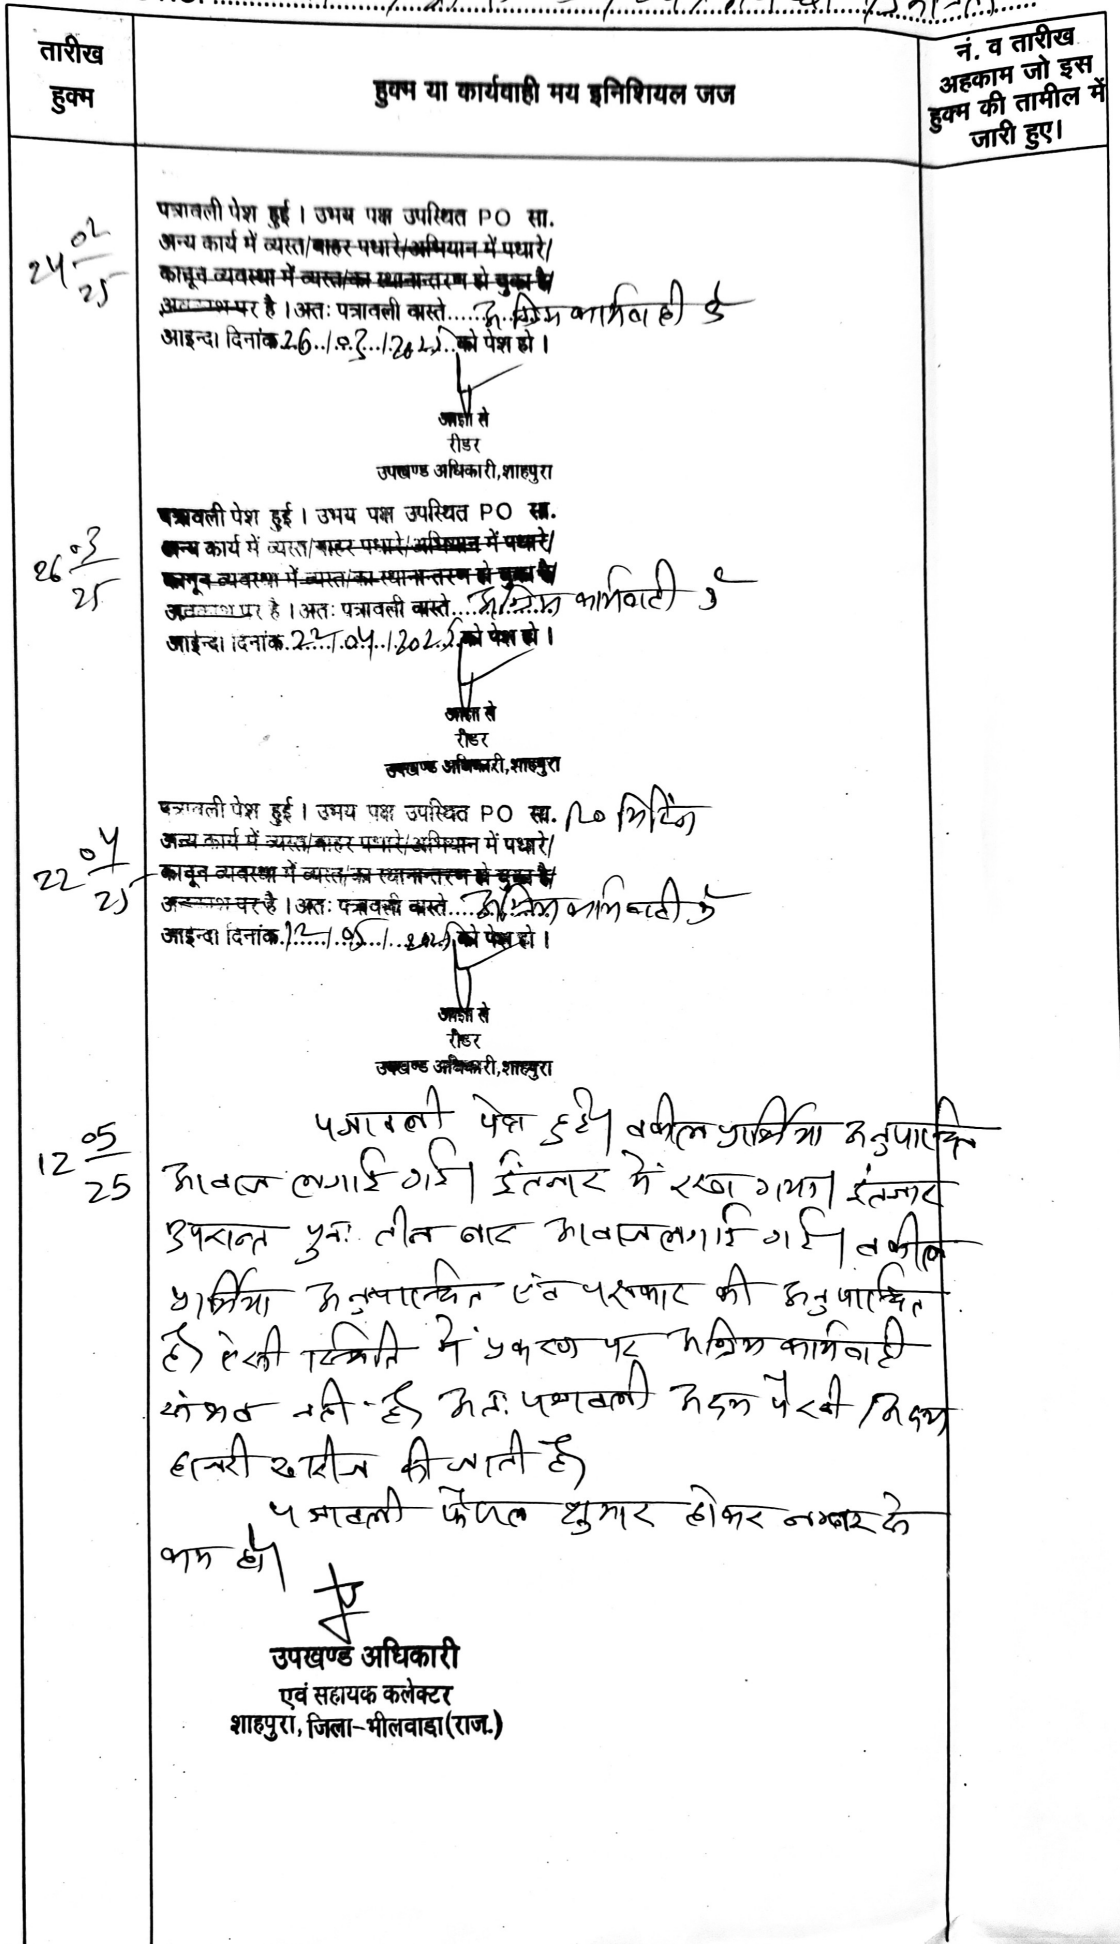 तारीख
हुक्म
हुक्म या कार्यवाही मय इनिशियल जज
नं. व तारीख
अहकाम जो इस
हुक्म की तामील में
जारी हुए।
24 02/25
पत्रावली पेश हुई । उभय पक्ष उपस्थित PO सा.
अन्य कार्य में व्यस्त/बाहर पधारे/अभियान में पधारे/
कानून व्यवस्था में व्यस्त/का स्थानान्तरण हो चुका है/
अवकाश पर है । अतः पत्रावली वास्ते.....अग्रिम कार्यवाही के
आइन्दा दिनांक 26../.03../.2025..को पेश हो ।
आज्ञा से
रीडर
उपखण्ड अधिकारी,शाहपुरा
26 03/25
पत्रावली पेश हुई । उभय पक्ष उपस्थित PO सा.
अन्य कार्य में व्यस्त/बाहर पधारे/अभियान में पधारे/
कानून व्यवस्था में व्यस्त/का स्थानान्तरण हो चुका है/
अवकाश पर है । अतः पत्रावली वास्ते....अग्रिम कार्यवाही के
आइन्दा दिनांक.22../.04../.2025 को पेश हो ।
आज्ञा से
रीडर
उपखण्ड अधिकारी,शाहपुरा
22 04/25
पत्रावली पेश हुई । उभय पक्ष उपस्थित PO सा. मिटिंग
अन्य कार्य में व्यस्त/बाहर पधारे/अभियान में पधारे/
कानून व्यवस्था में व्यस्त/का स्थानान्तरण हो चुका है/
अवकाश पर है । अतः पत्रावली वास्ते....अग्रिम कार्यवाही के
आइन्दा दिनांक.12.../.05../...2025 को पेश हो ।
आज्ञा से
रीडर
उपखण्ड अधिकारी,शाहपुरा
12 05/25
पत्रावली पेश हुई। वकील प्रार्थिया अनुपस्थित
आवाज लगाई गई। इंतजार में रखा गया। इंतजार
उपरान्त पुनः तीन बार आवाज लगाई गई। वकील
प्रार्थिया अनुपस्थित एवं पक्षकार की अनुपस्थित
है। ऐसी स्थिति में प्रकरण पर अग्रिम कार्यवाही
संभव नहीं है। अतः पत्रावली अदम पैरवी/अदम
हाजरी खारीज की जाती है।
पत्रावली फैसल शुमार होकर नम्बर से
कम हो।
उपखण्ड अधिकारी
एवं सहायक कलेक्टर
शाहपुरा, जिला-भीलवाडा(राज.)